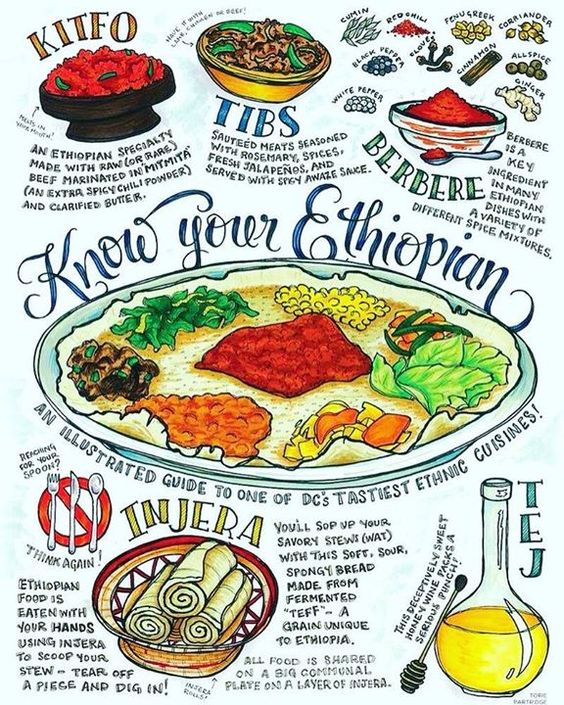 KITFO
MELTS IN
YOUR MOUTH!
AN ETHIOPIAN SPECIALTY
MADE WITH RAW (OR RARE)
BEEF MARINATED IN "MITMITA"
(AN EXTRA SPICY CHILI POWDER)
AND CLARIFIED BUTTER.
HAVE IT WITH
LAMB, CHICKEN OR BEEF!
TIBS
SAUTEÉD MEATS SEASONED
WITH ROSEMARY, SPICES,
FRESH JALAPEÑOS, AND
SERVED WITH SPICY AWAZE SAUCE.
CUMIN
RED CHILI
FENUGREEK
CORRIANDER
BLACK PEPPER
CLOVE
CINNAMON
ALLSPICE
GINGER
WHITE PEPPER
BERBERE
BERBERE
IS A
KEY
INGREDIENT
IN MANY
ETHIOPIAN
DISHES WITH
A VARIETY OF
DIFFERENT SPICE MIXTURES.
Know your Ethiopian
AN ILLUSTRATED GUIDE TO ONE OF DC'S TASTIEST ETHNIC CUISINES!
REACHING
FOR YOUR
SPOON?
THINK AGAIN!
ETHIOPIAN
FOOD IS
EATEN WITH
YOUR HANDS
USING INJERA
TO SCOOP YOUR
STEW - TEAR OFF
A PIECE AND DIG IN!
INJERA
INJERA
ROLLS!
YOU'LL SOP UP YOUR
SAVORY STEWS (WAT)
WITH THIS SOFT, SOUR,
SPONGY BREAD
MADE FROM
FERMENTED
"TEFF" - A
GRAIN UNIQUE
TO ETHIOPIA.
ALL FOOD IS SHARED
ON A BIG COMMUNAL
PLATE ON A LAYER OF INJERA.
TEJ
THIS DECEPTIVELY SWEET
HONEY WINE PACKS A
SERIOUS PUNCH!
TORIE
PARTRIDGE